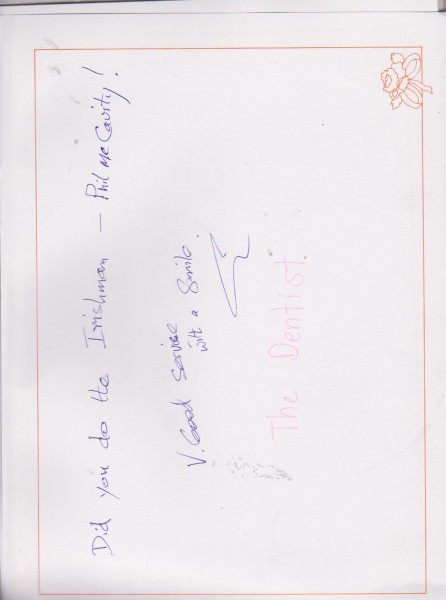 Did you do the Irishman – Phil McCavity!
V. Good Service
with a Smile.
The Dentist